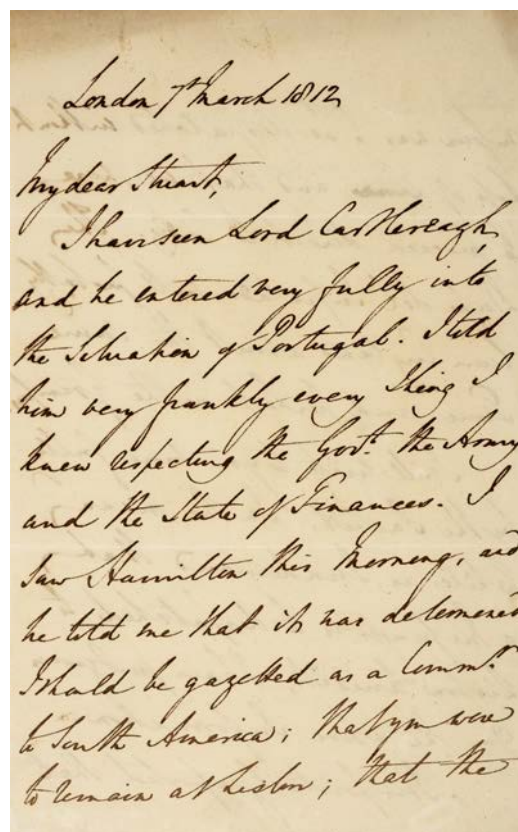 London 7th March 1812
My dear Stuart,
I have seen Lord Castlereagh,
and he entered very fully into
the Situation of Portugal. I told
him very frankly every thing I
knew respecting the Govt. the Army
and the State of Finances. I
saw Hamilton this Morning, and
he told me that it was determined
I should be gazetted as a Commr.
to South America; that you were
to remain at Lisbon; that the